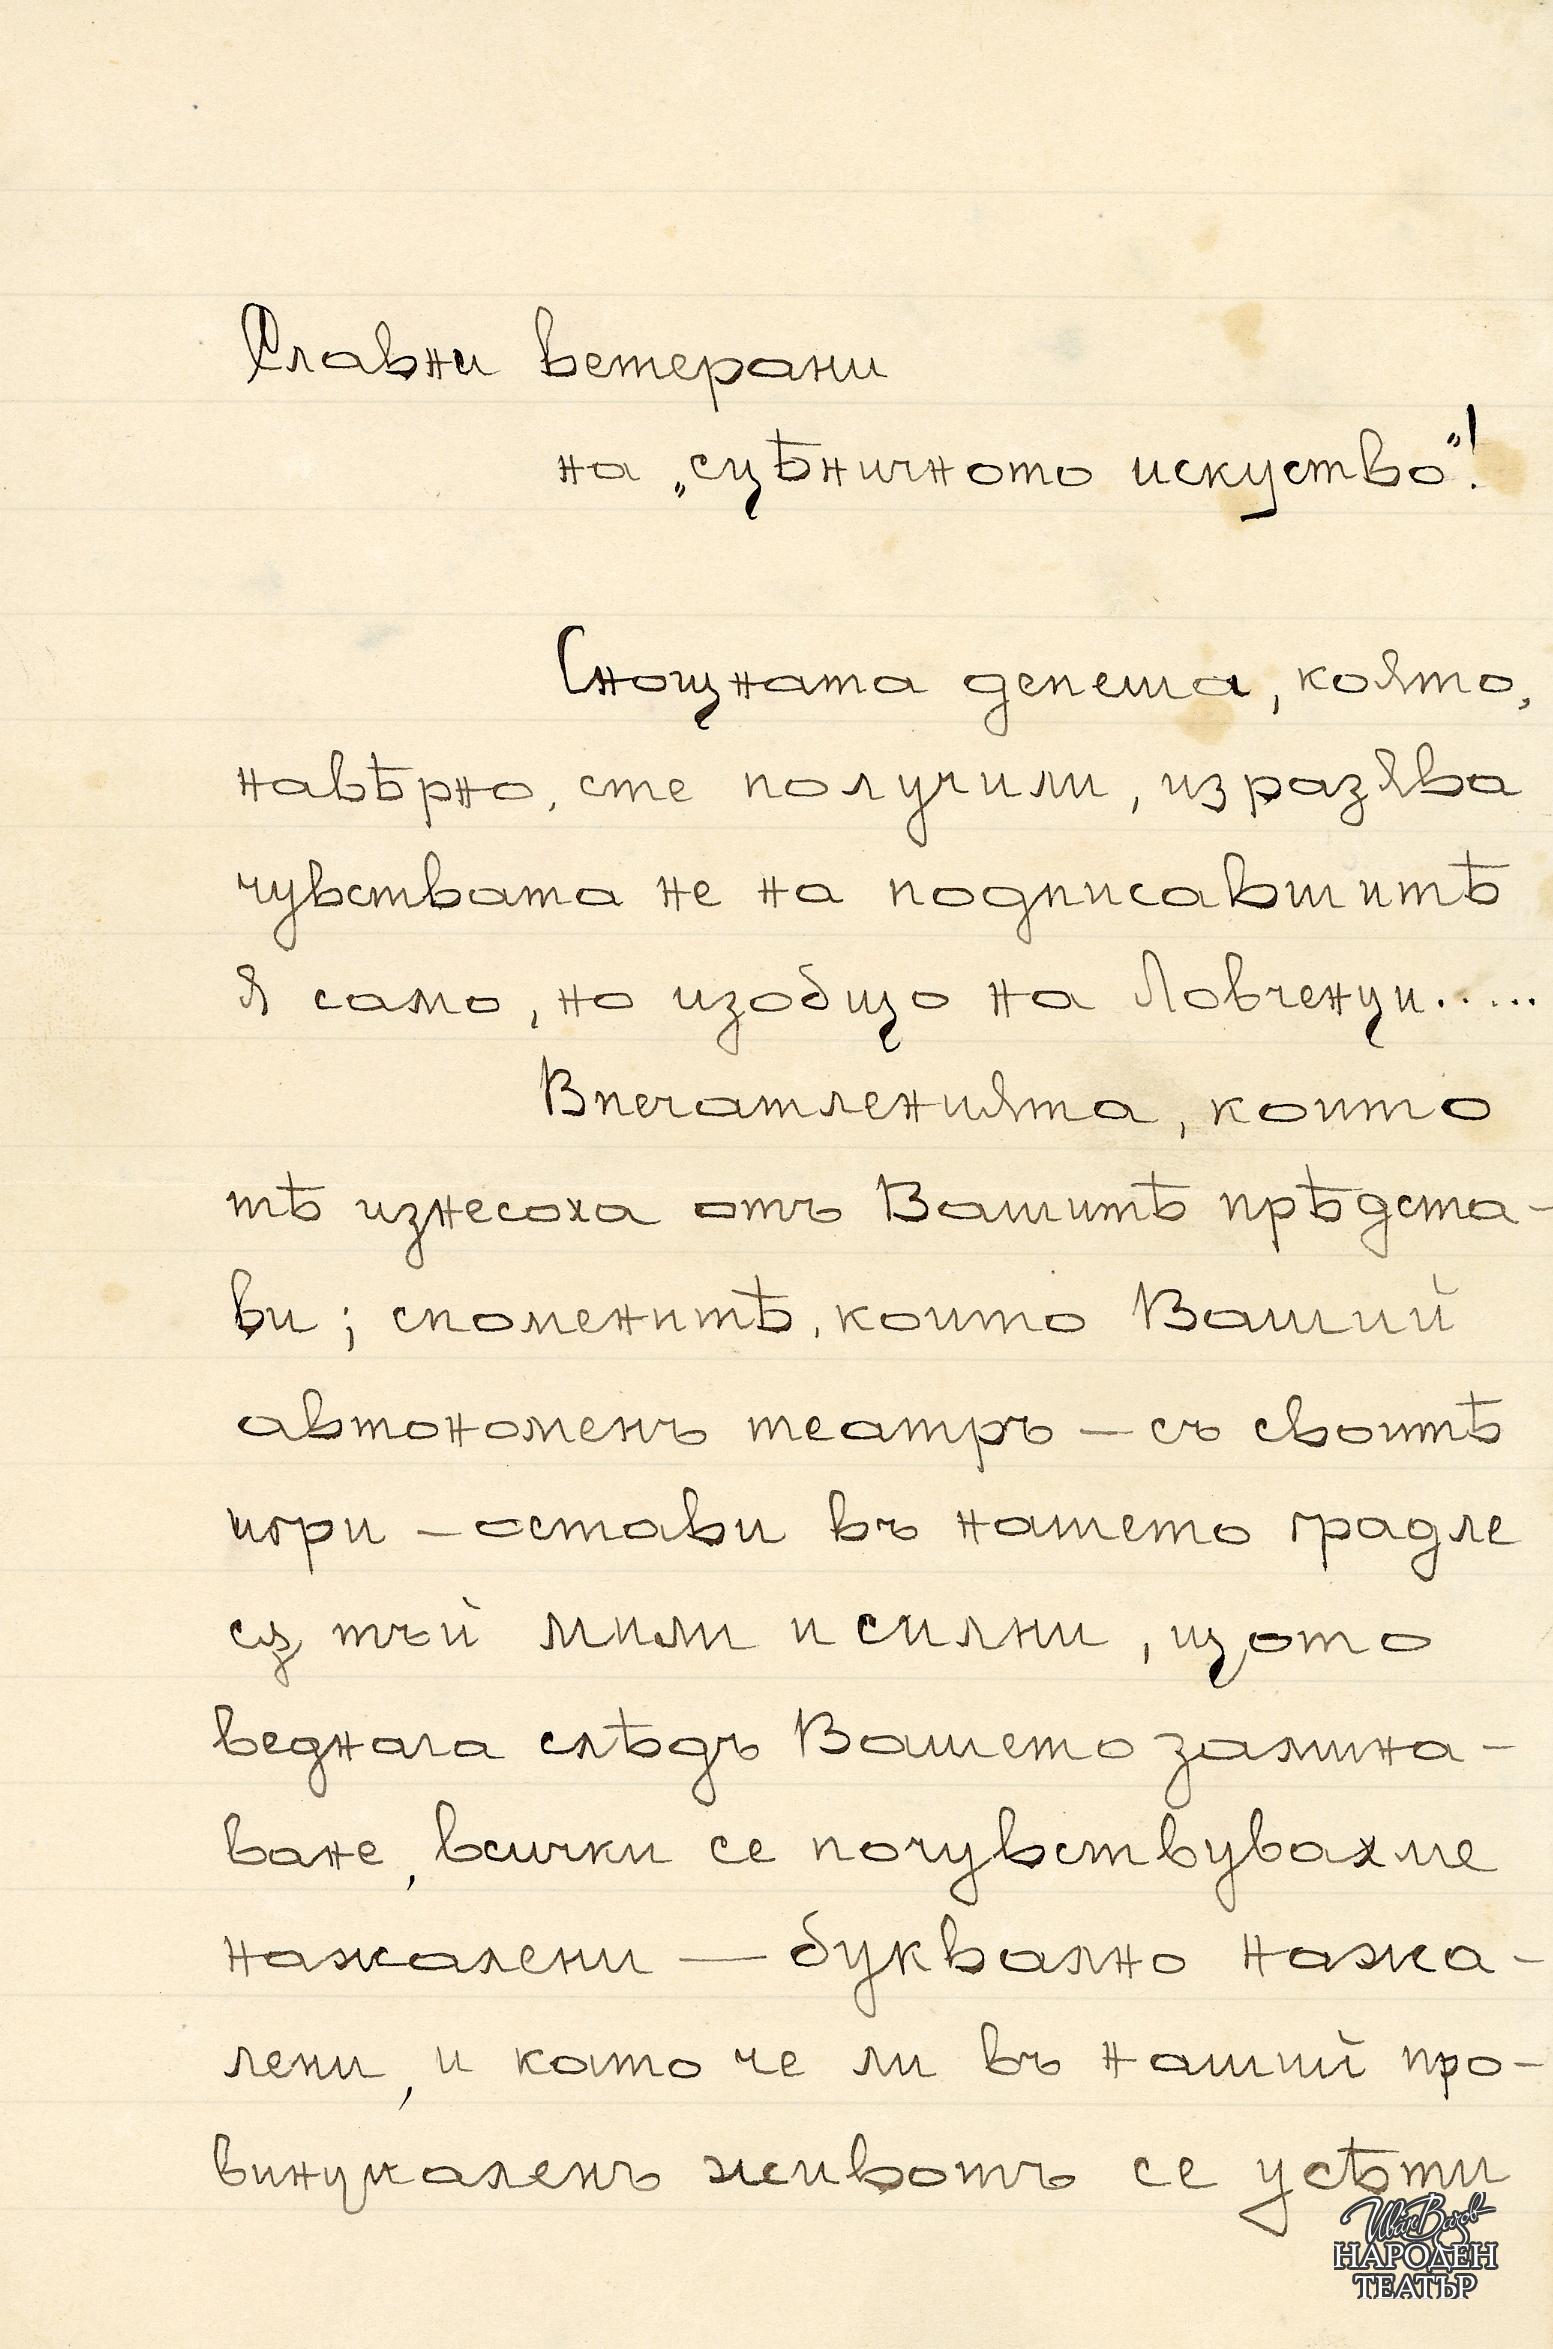 Славни ветерани
на „сцѣничното искуство"!
Снощната депеша, която,
навѣрно, сте получили, изразява
чувствата не на подписавшитѣ
я само, но изобщо на Ловченци.....
Впечатленията, които
тѣ изнесоха отъ Вашитѣ прѣдста-
ви; споменитѣ, които Ваший
автономенъ театръ — съ своитѣ
игри — остави въ нашето градле
сѫ тъй мили и силни, щото
веднага слѣдъ Вашето замина-
ване, всички се почувствувахме
нажалени — буквално нажа-
лени, и като че ли въ наший про-
винциаленъ животъ се усѣти
Иван Вазов
НАРОДЕН
ТЕАТЪР